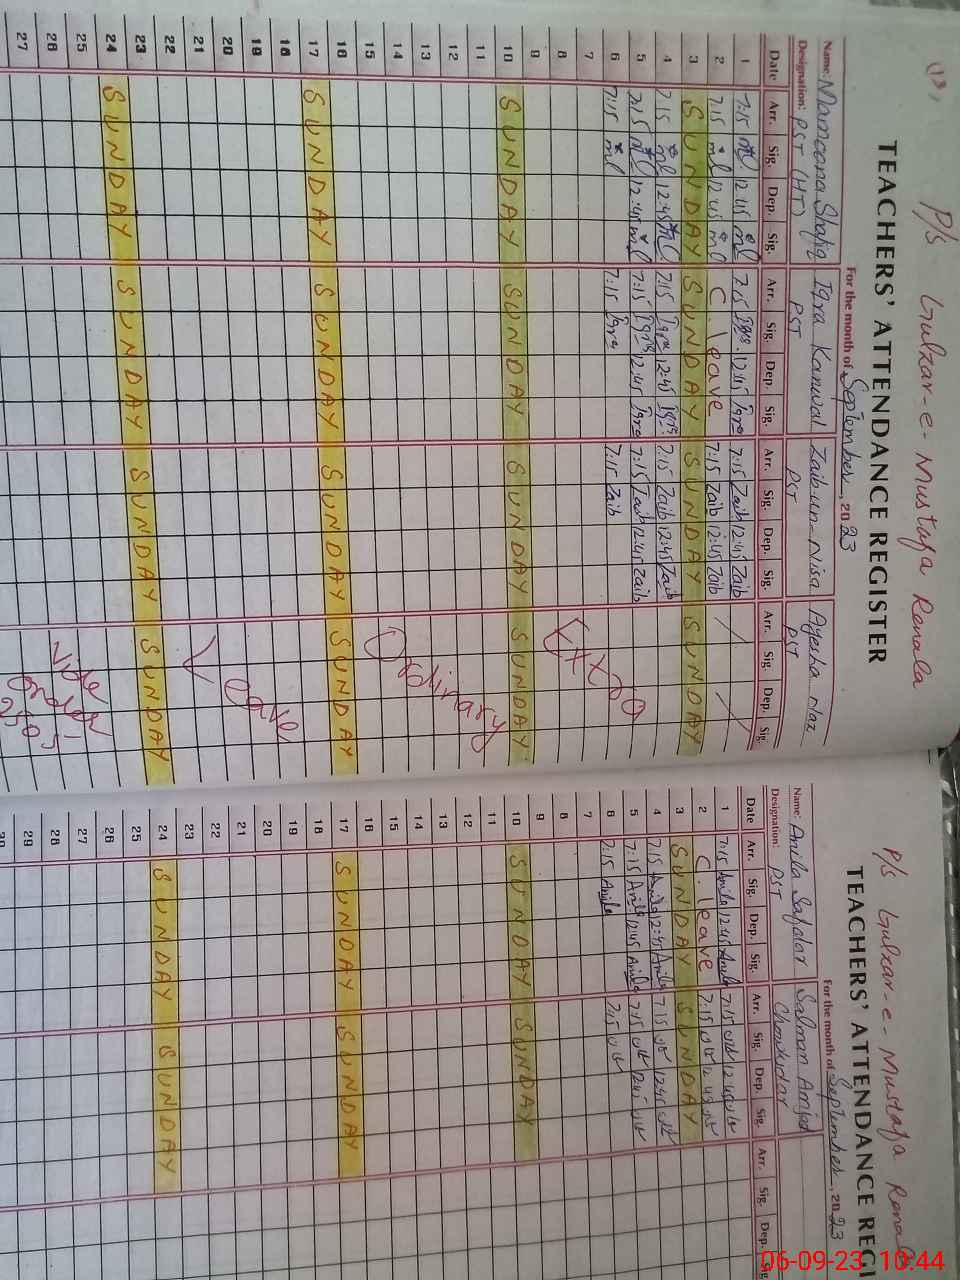 (13)
P/s Gulzar-e-Mustafa Renala
TEACHERS' ATTENDANCE REGISTER
For the month of September, 2023
Name: Mamoona Shafiq Iqra Kanwal Zaib-un-Nisa Ayesha Naz
Designation: PST (HT) PST PST PST
Date Arr. Sig. Dep. Sig. Arr. Sig. Dep. Sig. Arr. Sig. Dep. Sig. Arr. Sig. Dep. Sig.
1 7:15 12:45 7:15 Iqra 12:45 Iqra 7:15 Zaib 12:45 Zaib
2 7:15 12:45 C leave 7:15 Zaib 12:45 Zaib
3 SUNDAY SUNDAY SUNDAY SUNDAY
4 7:15 12:45 7:15 Iqra 12:45 Iqra 7:15 Zaib 12:45 Zaib
5 7:15 12:45 7:15 Iqra 12:45 Iqra 7:15 Zaib 12:45 Zaib
6 7:15 7:15 Iqra 7:15 Zaib
7
8 Extra
9
10 SUNDAY SUNDAY SUNDAY SUNDAY
11
12
13
14 Ordinary
15
16
17 SUNDAY SUNDAY SUNDAY SUNDAY
18
19
20 Leave
21
22
23
24 SUNDAY SUNDAY SUNDAY SUNDAY
25 vide
26 order
27 2505
P/s Gulzar-e-Mustafa Renala
TEACHERS' ATTENDANCE REGI
For the month of September, 2023
Name: Anila Safdar Salman Amjad
Designation: PST Chowkidar
Date Arr. Sig. Dep. Sig. Arr. Sig. Dep. Sig. Arr. Sig. Dep. Sig.
1 7:15 Anila 12:45 Anila 7:15 12:45
2 C. leave 7:15 12:45
3 SUNDAY SUNDAY
4 7:15 Anila 12:45 Anila 7:15 12:45
5 7:15 Anila 12:45 Anila 7:15 12:45
6 7:15 Anila 7:15
7
8
9
10 SUNDAY SUNDAY
11
12
13
14
15
16
17 SUNDAY SUNDAY
18
19
20
21
22
23
24 SUNDAY SUNDAY
25
26
27
28
29
30
06-09-23 10:44